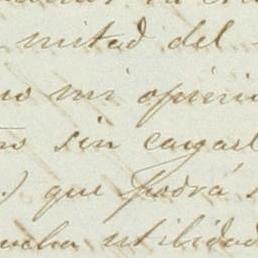 mitad del
mi opinio
sin cargarl
.) que podrá s
ucha utilidad